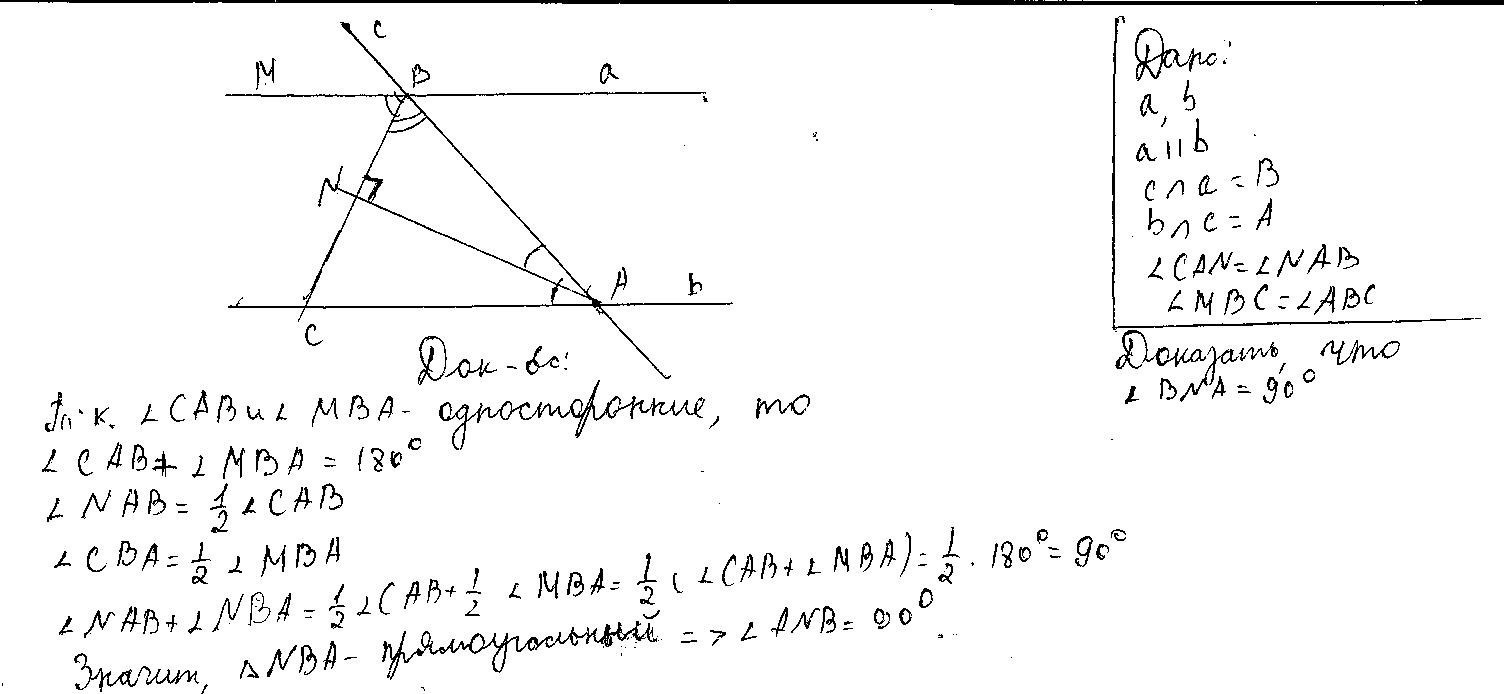 c
M B a
N
A b
C
Дано:
a, b
a || b
c ∩ a = B
b ∩ c = A
∠CAN = ∠NAB
∠MBC = ∠ABC
Доказать, что
∠BNA = 90°
Док-во:
Т.к. ∠CAB и ∠MBA - односторонние, то
∠CAB + ∠MBA = 180°
∠NAB = 1/2 ∠CAB
∠CBA = 1/2 ∠MBA
∠NAB + ∠NBA = 1/2 ∠CAB + 1/2 ∠MBA = 1/2 (∠CAB + ∠MBA) = 1/2 · 180° = 90°
Значит, △NBA - прямоугольный => ∠ANB = 90°.